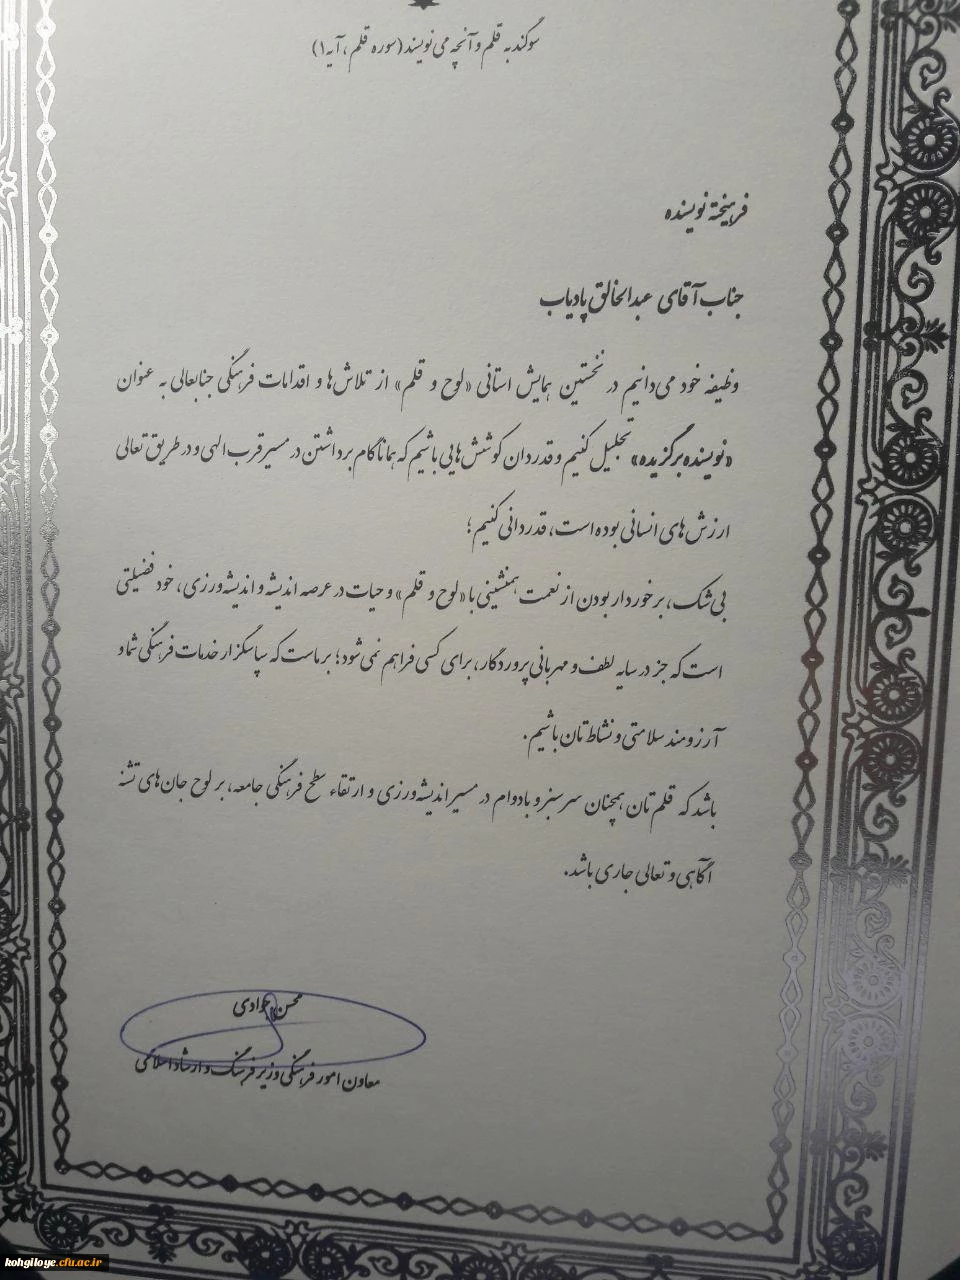 سوگند به قلم و آنچه می نویسند (سوره قلم، آیه ۱)
فرهیخته نویسنده
جناب آقای عبدالخالق پادیاب
وظیفه خود می‌دانیم در نخستین همایش استانی «لوح و قلم» از تلاش‌ها و اقدامات فرهنگی جنابعالی به عنوان
«نویسنده برگزیده» تجلیل کنیم و قدردان کوشش‌هایی باشیم که همانا گام برداشتن در مسیر قرب الهی و در طریق تعالی
ارزش‌های انسانی بوده است، قدردانی کنیم؛
بی‌شک، برخوردار بودن از نعمت همنشینی با «لوح و قلم» و حیات در عرصه اندیشه و اندیشه‌ورزی، خود فضیلتی
است که جز در سایه لطف و مهربانی پروردگار، برای کسی فراهم نمی‌شود؛ بر ماست که سپاسگزار خدمات فرهنگی شما و
آرزومند سلامتی و نشاط‌تان باشیم.
باشد که قلم‌تان همچنان سرسبز و بادوام در مسیر اندیشه‌ورزی و ارتقاء سطح فرهنگی جامعه، بر لوح جان‌های تشنه
آگاهی و تعالی جاری باشد.
محسن جوادی
معاون امور فرهنگی وزیر فرهنگ و ارشاد اسلامی
kohgiloye.cfu.ac.ir